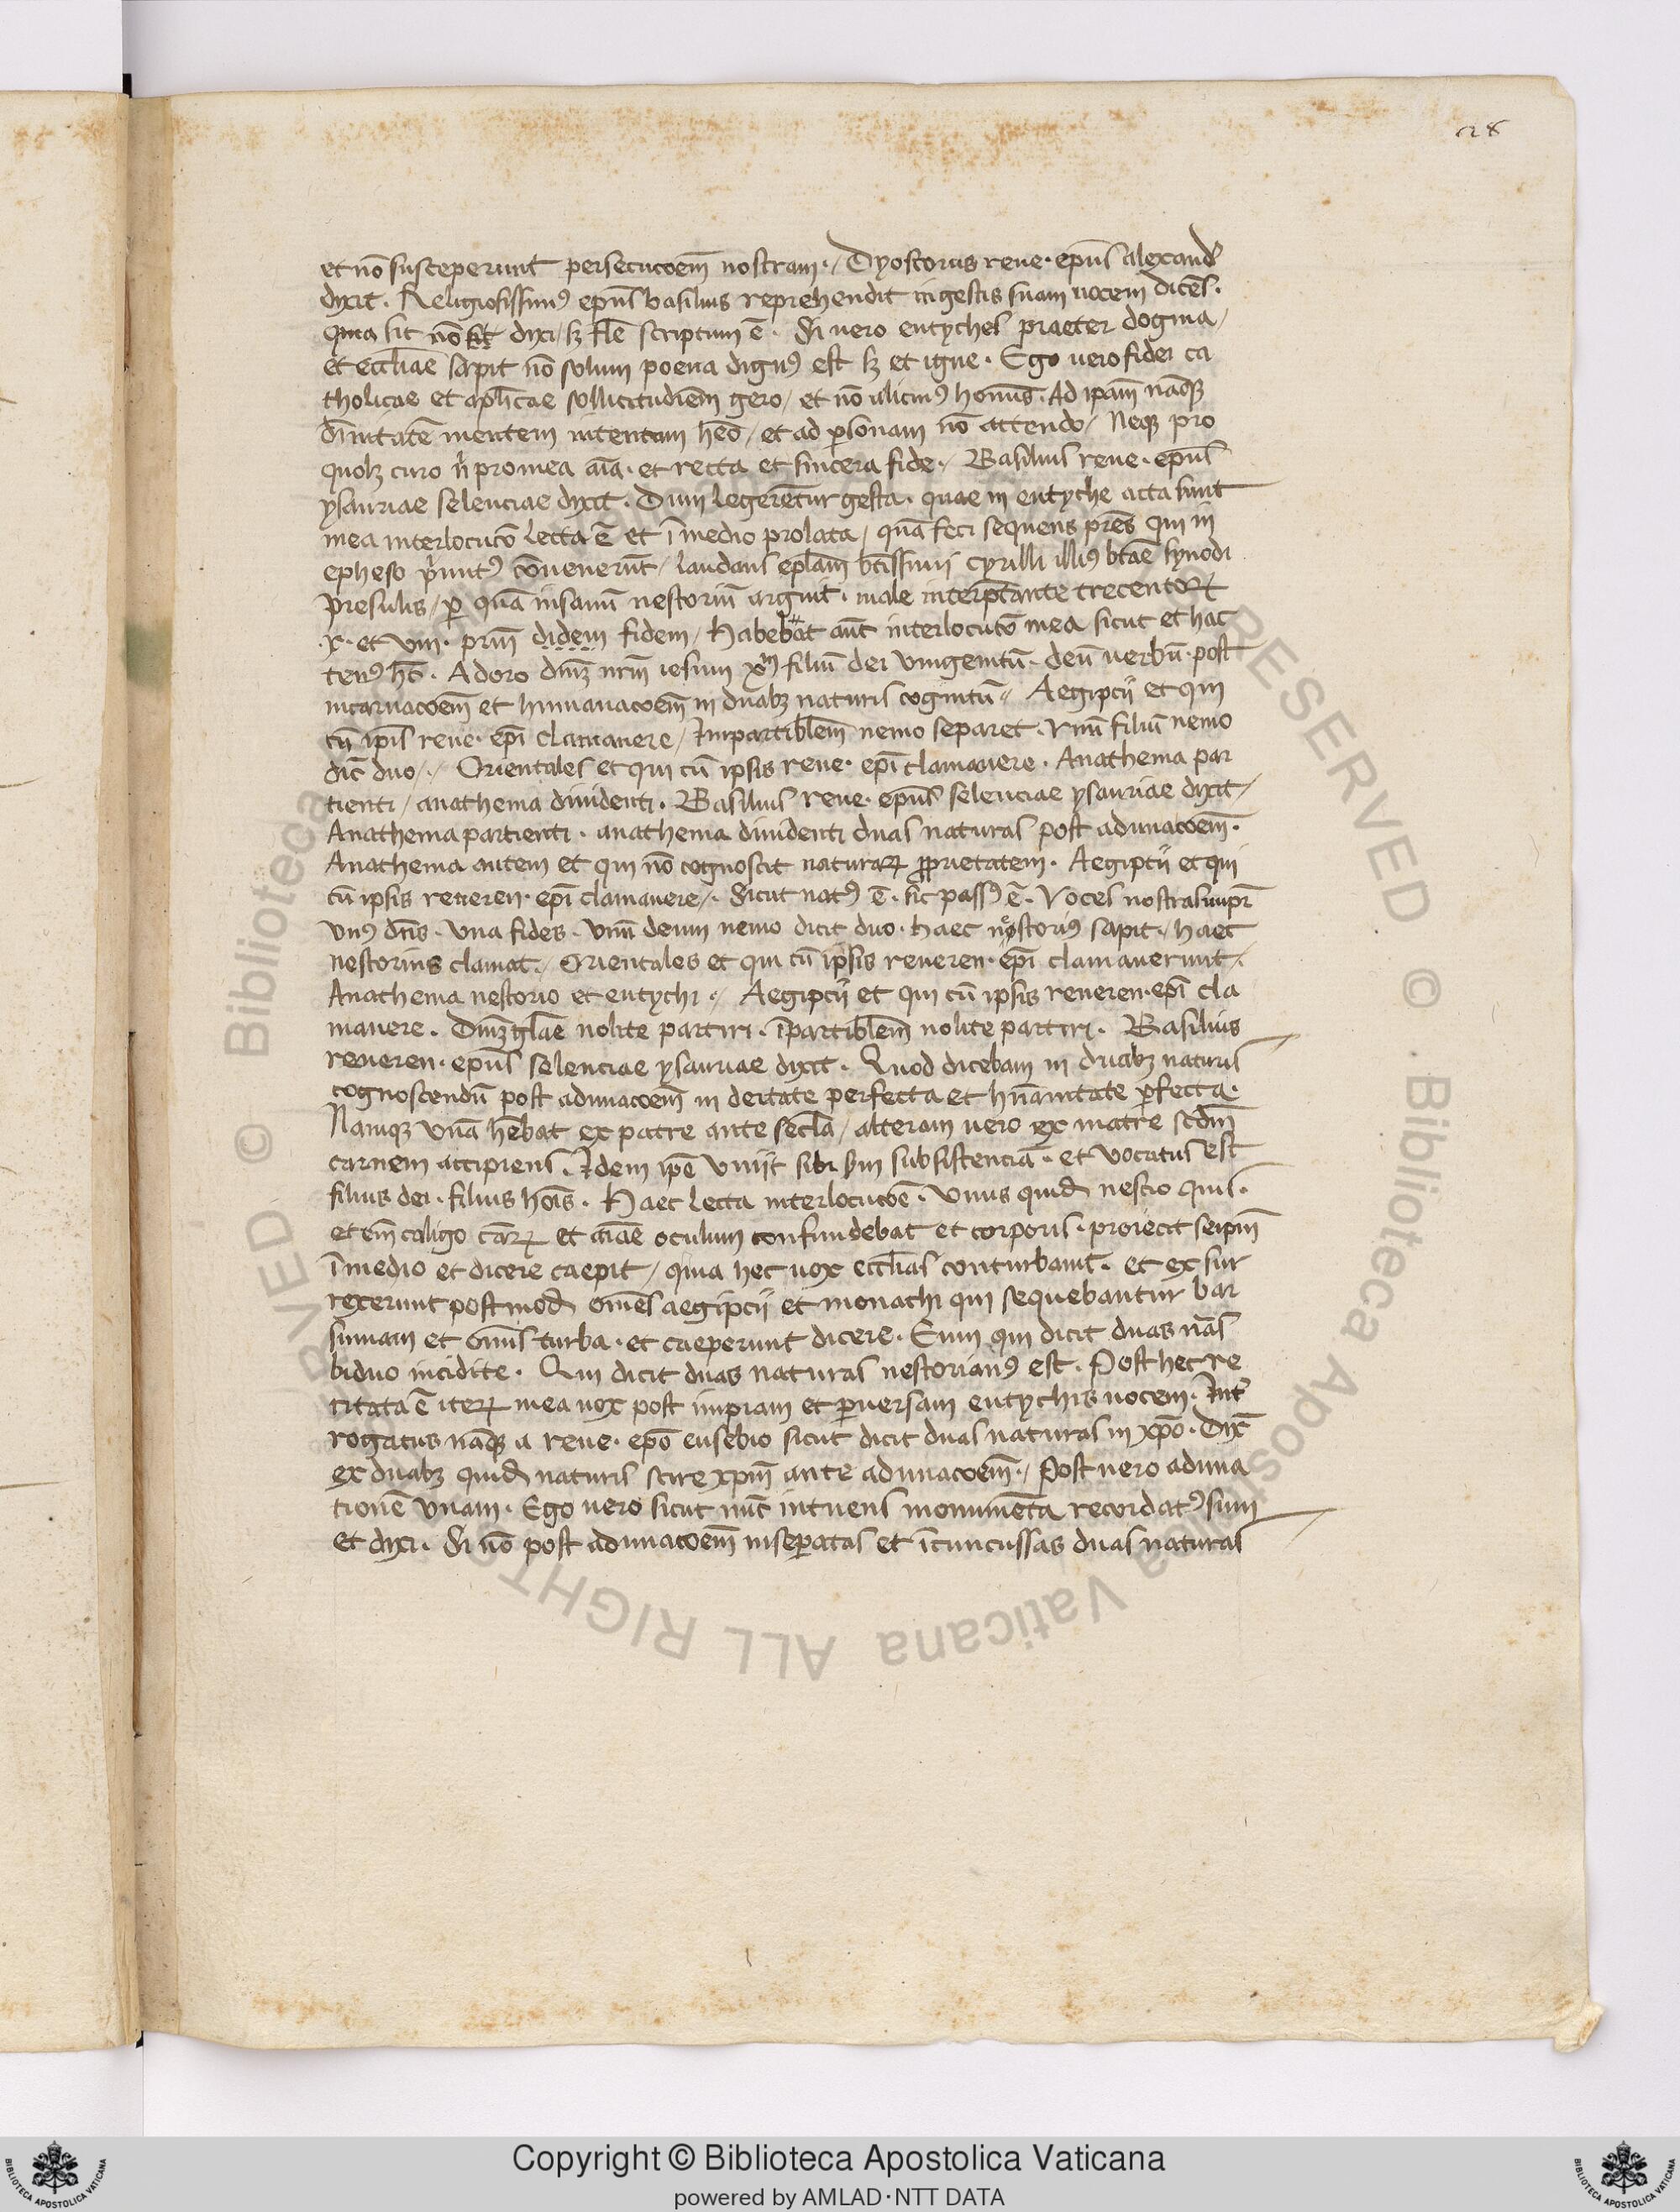 128
et nō susceperunt persecucoēm nostram ·/ Dyoscorus reue· ep̄us alexand
dixit · Religiosissimꝰ ep̄us basilius reprehendit in gestis suam uocem dicēs ·
Quia sic nō dixi / sꝫ scriptum ē · Si vero eutyches praeter dogma /
et eccl̄iae sapit nō solum poena dignꝰ est sꝫ et igne · Ego uero fidei ca
tholicae et apl̄icae sollicitudīem gero / et nō alicuiꝰ homīs · Ad ip̄am nāqꝫ
diuītatē mentem intentam heō / et ad ꝑsonam nō attendo / Neqꝫ pro
quolꝫ curo ñ pro mea aīa · et recta et sincera fide ·/ Basilius reue · ep̄us
ysauriae seleuciae dixit · Dum legerētur gesta · quae in eutyche acta sunt
mea interlocucō lecta ē et ī medio prolata / quā feci sequens pr̄es qui in
epheso cōuenerūt / laudans epl̄am btīssimi cyrilli illiꝰ btāe synodi
presulis / ꝑ quā insanū nestoriū arguit · male interp̄tante trecentoꝝ
·x· et viii· pr̄um didem fidem / Habebat aūt interlocucō mea sicut et hac
tenꝰ hēt · Adoro dn̄ꝫ nr̄m iesum xp̄m filiū dei vnigenitū · deū uerbū · post
incarnacoēm et humanacoēm in duabꝫ naturis cognitū ·/ Aegiptii et qui
cū ip̄is reue · ep̄i clamauere / Impartiblēm nemo separet · Vnū filiū nemo
dic̄ duo /·/ Orientales et qui cū ipsis reue · ep̄i clamauere · Anathema par
tienti / anathema diuidenti · Basilius reue · ep̄us seleuciae ysauriae dixit /
Anathema partienti · anathema diuidenti duas naturas post adunacoēm ·
Anathema autem et qui nō cognoscit naturaꝝ ꝓprietatem · Aegiptii et qui
cū ipsis reueren · ep̄i clamauere /· Sicut natꝰ ē · sic passꝰ ē · Voces nostras
vnꝰ dn̄s · vna fides · vnū deum nemo dicit duo · haec nestoriꝰ sapit ·/ haec
nestorius clamat ·/ Orientales et qui cū ipsis reueren · ep̄i clamauerunt /·
Anathema nestorio et eutychi ·/ Aegiptii et qui cū ipsis reueren · ep̄i cla
mauere · Dn̄ꝫ gl̄ae nolite partiri · īpartiblēm nolite partiri · Basilius
reueren · ep̄us seleuciae ysauriae dixit · Quod dicebam in duabꝫ naturis
cognoscendū post adunacoēm in deitate perfecta et hūanitate ꝑfecta ·
Namqꝫ vnā hēbat ex patre ante secl̄a / alteram uero ex matre scdm̄
carnem accipiens · Idem ip̄e vniit sibi sm̄ subsistenciā · et vocatus est
filius dei · filius hoīs · Haec lecta interlocucoē · Vnus quiđ nescio quis ·
et em̄ caligo et aīae oculum confundebat et corporis · proiecit seip̄m
ī medio et dicere caepit / quia hec uox eccl̄ias conturbauit · et ex sur
rexerunt postmođ om̄es aegiptii et monachi qui sequebantur bar
sumam et om̄is turba · et caeperunt dicere · Eum qui dicit duas nās
biduo incidite · Qui dicit duas naturas nestorianꝰ est · Post hec re
citata ē iteꝝ mea uox post impiam et ꝑuersam eutychis uocem · Int̉
rogatus nāqꝫ a reue · ep̄o eusebio sicut dicit duas naturas in xp̄o · Dix̄
ex duabꝫ quiđ naturis scire xp̄m ante adunacoēm ·/ Post uero aduna
tionē vnam · Ego uero sicut nūc intuens monumēta recordatꝰ sum
et dixi · Si nō post adunacoēm inseꝑatas et īcuncussas duas naturas
Copyright © Biblioteca Apostolica Vaticana
powered by AMLAD·NTT DATA